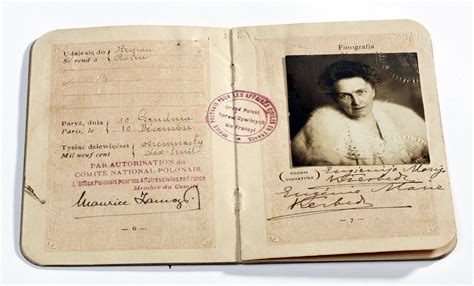 Udaje się do Rzymu
Se rend à Rome
Paryż, dnia 10 Grudnia
Paris, le 10 Décembre
Tysiąc dziewięćset ośmnasty
Mil neuf cent dix-huit
PAR AUTORISATION du
COMITÉ NATIONAL POLONAIS
L'Office Polonais pour les Affaires civiles en France
Membre du Comité
Maurice Zamoy
— 6 —
POLONAIS POUR LES AFFAIRES CIVILES EN FRANCE
Urząd Polski
Spraw Cywilnych
We Francyi
Fotografja
PODPIS
(SIGNATURE)
Eugenija Marja
Kierbedź
Eugénie Marie
Kerbedź
— 7 —